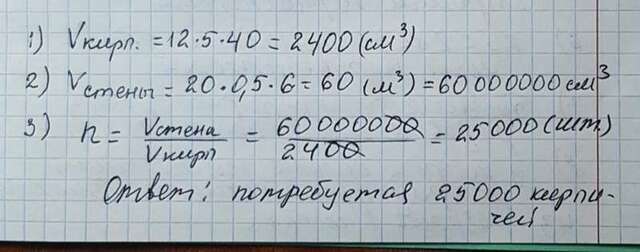 1) Vкирп. = 12·5·40 = 2400 (см³)
2) Vстены = 20·0,5·6 = 60 (м³) = 60000000 см³
3) n = Vстена / Vкирп = 60000000 / 2400 = 25000 (шт.)
Ответ: потребуется 25000 кирпи-
чей